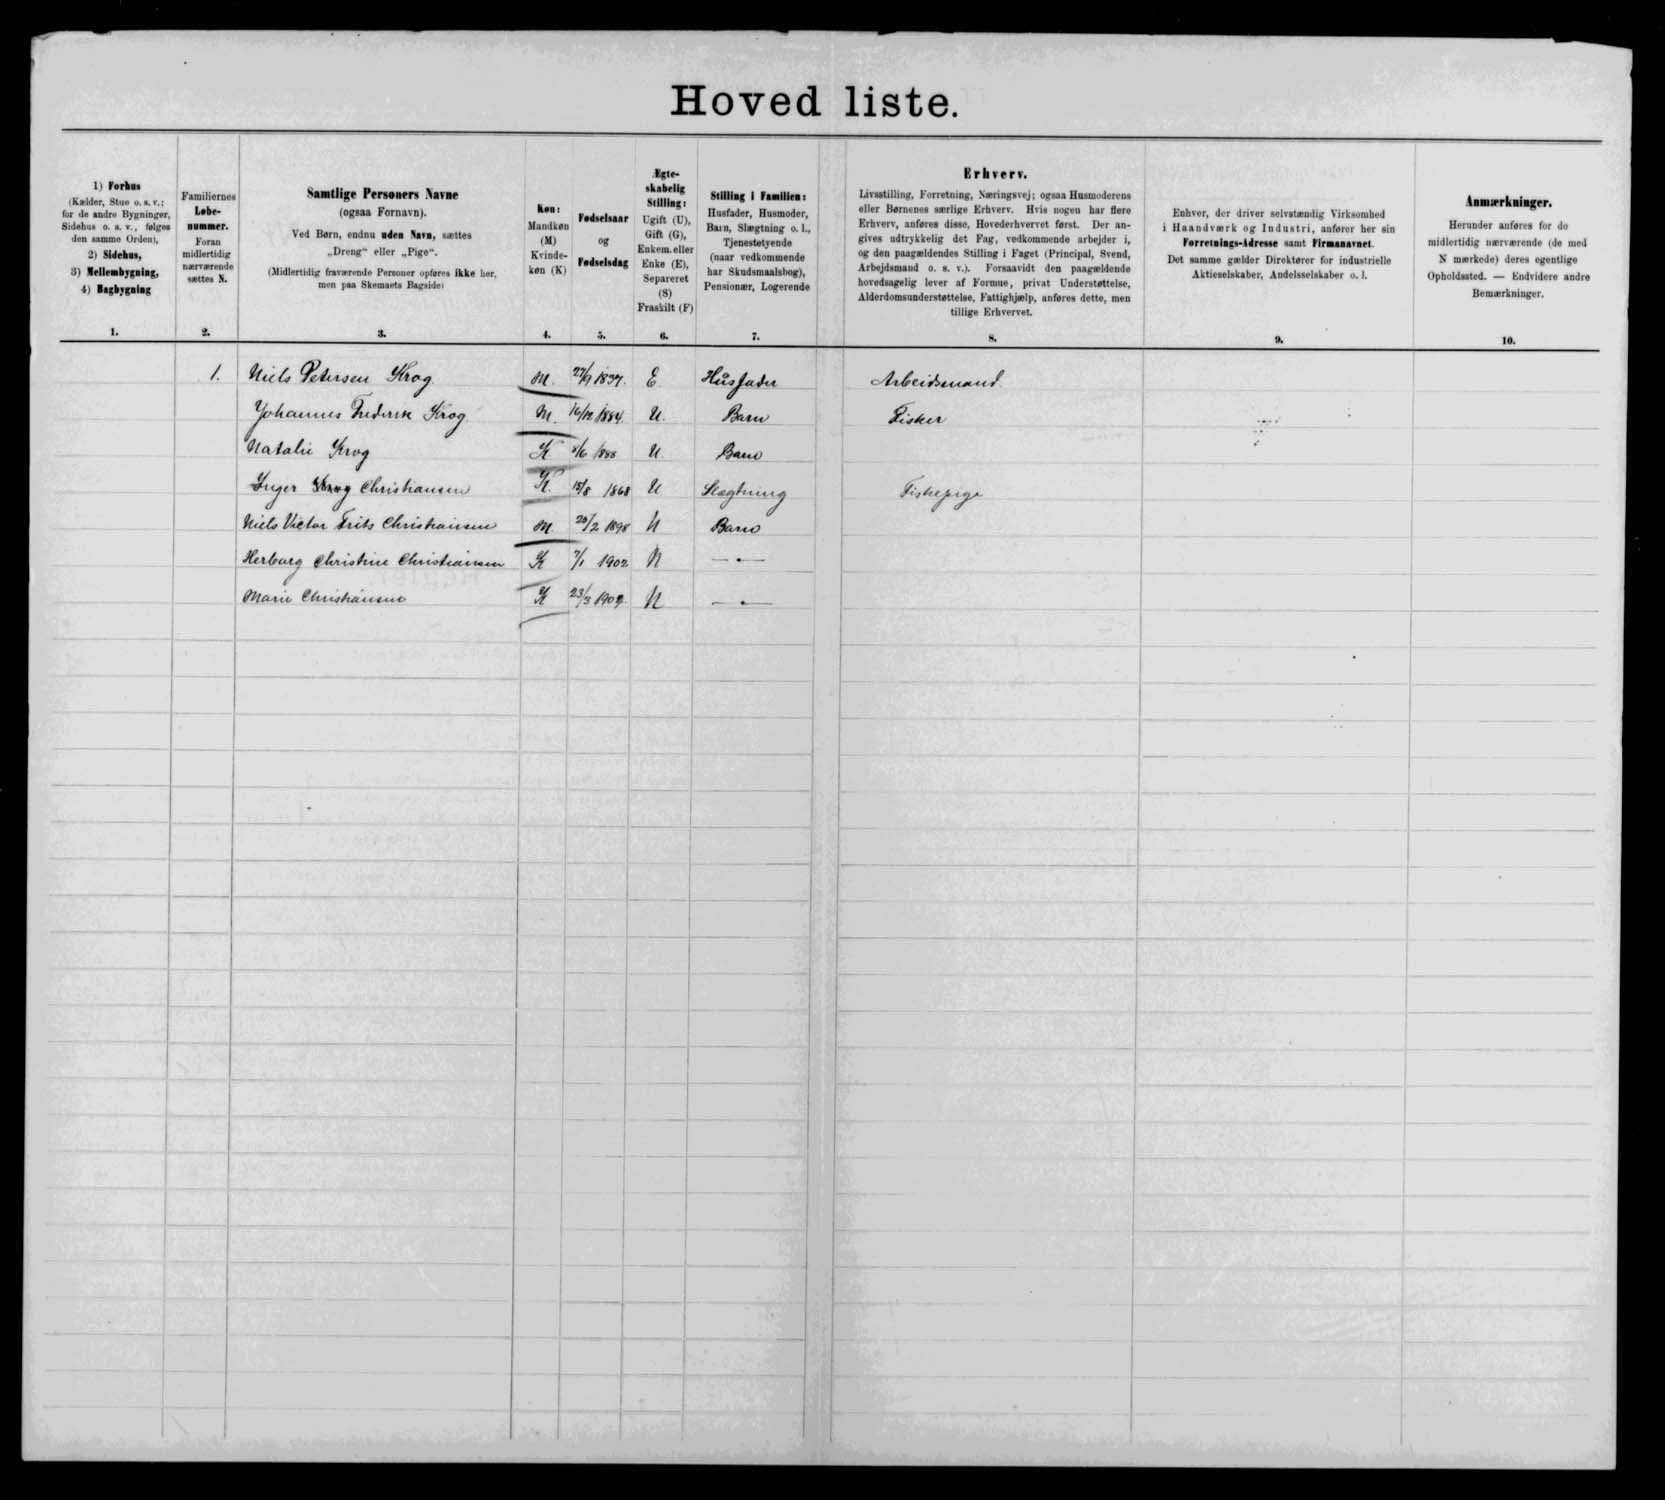 Hoved liste.
1) Forhus
(Kælder, Stue o. s. v.;
for de andre Bygninger,
Sidehus o. s. v., følges
den samme Orden),
2) Sidehus,
3) Mellembygning,
4) Bagbygning
1.
Familiernes
Løbe-
nummer.
Foran
midlertidig
nærværende
sættes N.
2.
Samtlige Personers Navne
(ogsaa Fornavn).
Ved Børn, endnu uden Navn, sættes
„Dreng“ eller „Pige“.
(Midlertidig fraværende Personer opføres ikke her,
men paa Skemaets Bagside)
3.
Køn:
Mandkøn
(M)
Kvinde-
køn (K)
4.
Fødselsaar
og
Fødselsdag
5.
Ægte-
skabelig
Stilling:
Ugift (U),
Gift (G),
Enkem. eller
Enke (E),
Separeret
(S)
Fraskilt (F)
6.
Stilling i Familien:
Husfader, Husmoder,
Barn, Slægtning o. l.,
Tjenestetyende
(naar vedkommende
har Skudsmaalsbog),
Pensionær, Logerende
7.
Erhverv.
Livsstilling, Forretning, Næringsvej; ogsaa Husmoderens
eller Børnenes særlige Erhverv. Hvis nogen har flere
Erhverv, anføres disse, Hovederhvervet først. Der an-
gives udtrykkelig det Fag, vedkommende arbejder i,
og den paagældendes Stilling i Faget (Principal, Svend,
Arbejdsmand o. s. v.). Forsaavidt den paagældende
hovedsagelig lever af Formue, privat Understøttelse,
Alderdomsunderstøttelse, Fattighjælp, anføres dette, men
tillige Erhvervet.
8.
Enhver, der driver selvstændig Virksomhed
i Haandværk og Industri, anfører her sin
Forretnings-Adresse samt Firmanavnet.
Det samme gælder Direktører for industrielle
Aktieselskaber, Andelsselskaber o. l.
9.
Anmærkninger.
Herunder anføres for de
midlertidig nærværende (de med
N mærkede) deres egentlige
Opholdssted. — Endvidere andre
Bemærkninger.
10.
1. Niels Petersen Krog M. 27/9 1837. E. Husfader Arbeidsmand.
Johannes Frederik Krog M. 16/12 1884. U. Barn Fisker
Natalie Krog K 8/6 1888 U. Barn
Inger Christiansen K. 15/8 1868 U Slægtning Fiskepige
Niels Victor Frits Christiansen M. 20/2 1898 U Barn
Herborg Christine Christiansen K 7/1 1902 U — " —
Marie Christiansen K 23/3 U — " —